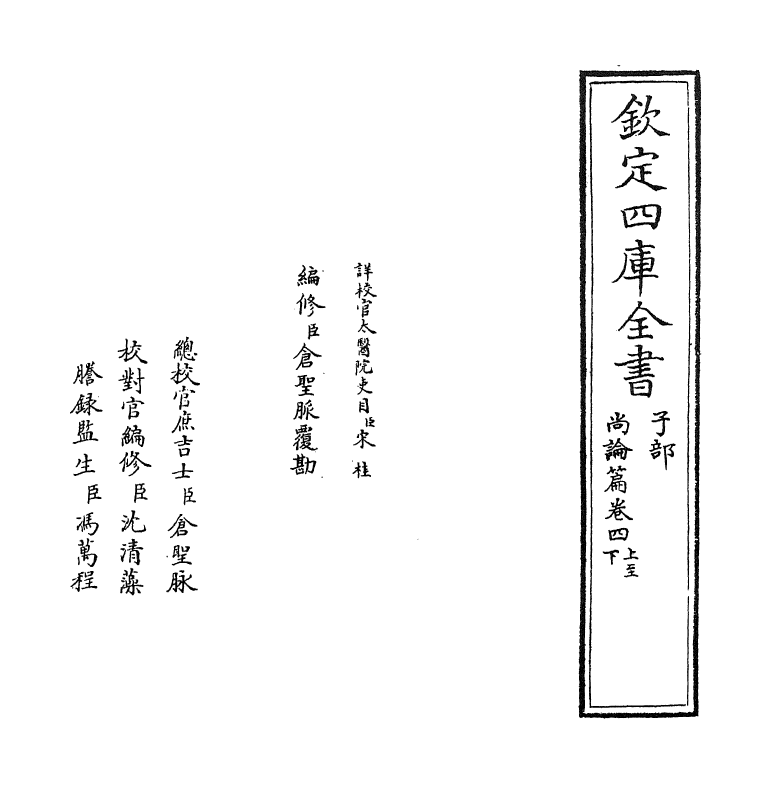 欽定四庫全書
子部
尚論篇卷四上至下
詳校官太醫院吏目臣宋桂
編修臣倉聖脈覆勘
總校官庶吉士臣倉聖脉
校對官編修臣沈清藻
謄錄監生臣馮萬程